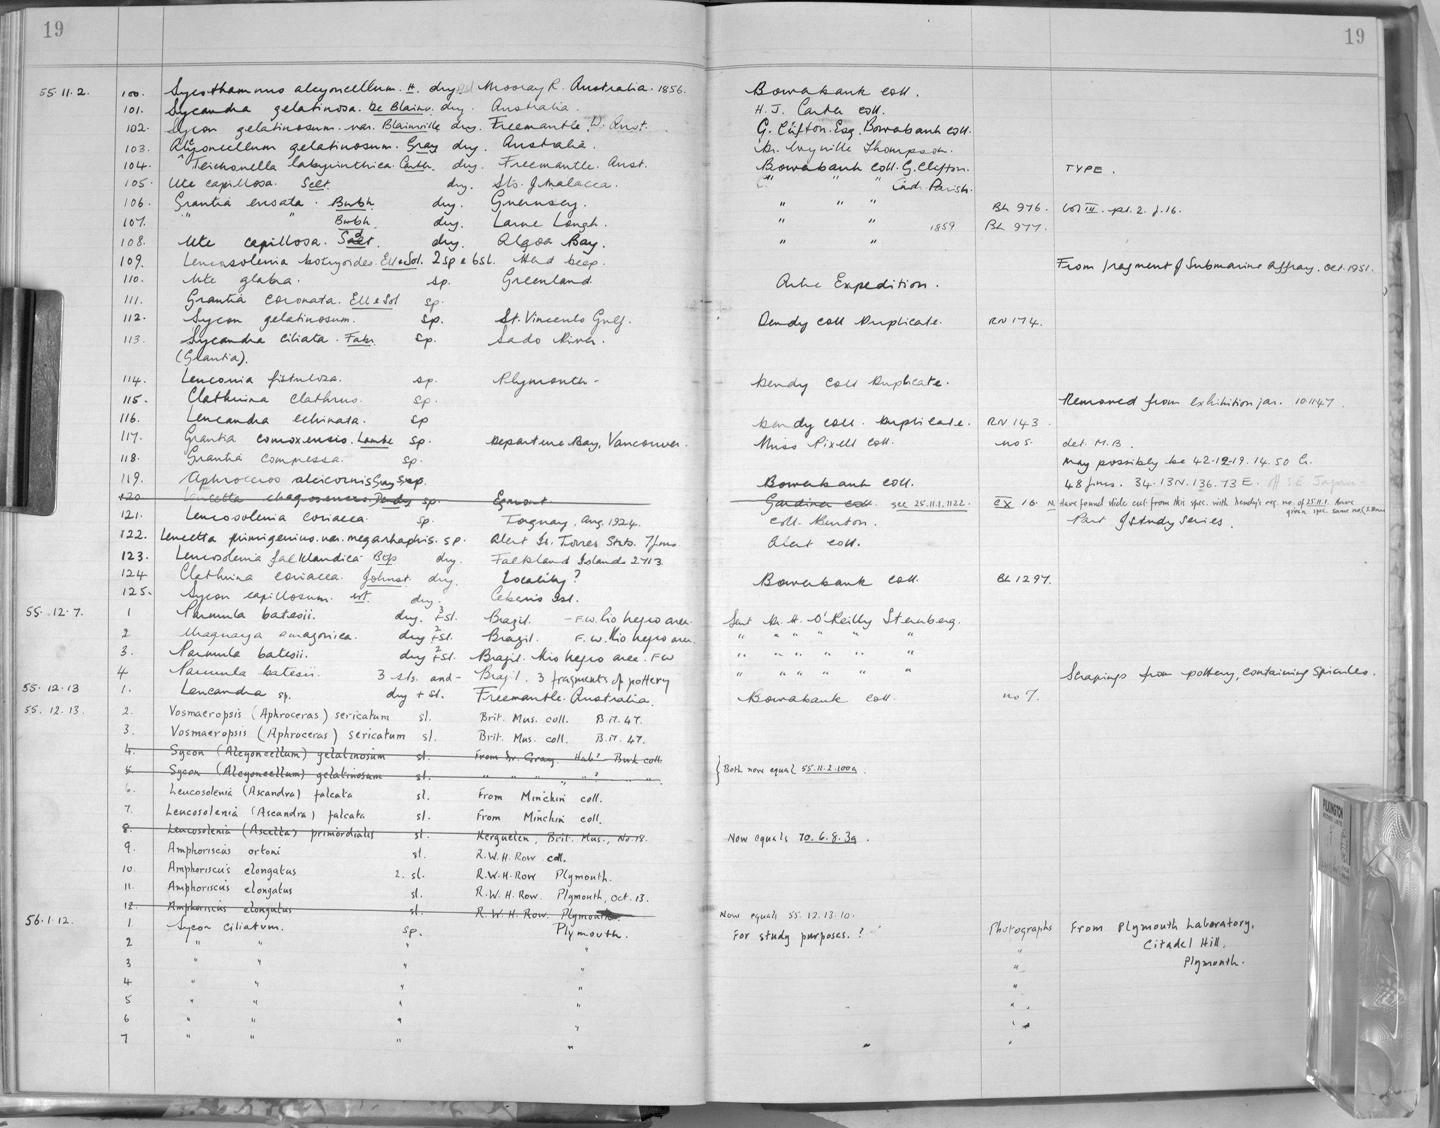 19
19
55.11.2. 100. Sycothamnus alcyoncellum. H. dry Murray R. Australia. 1856. Bowerbank coll.
101. Sycandra gelatinosa. De Blainv. dry. Australia. H. J. Carter coll.
102. Sycon gelatinosum. var. Blainville dry. Freemantle. G. Clifton. Esq. Bowerbank coll.
103. Alcyoncellum gelatinosum. Gray dry. Australia. Dr. Wyville Thompson.
104. Teichonella labyrinthica Carter. dry. Freemantle. Aust. Bowerbank coll. G. Clifton. TYPE.
105. Ute capillosa. Sclt. dry. Sts. of Malacca. " " " Parish.
106. Grantia ensata. Bwbk. dry. Guernsey. " " " BK 976. Vol III. pt. 2. f. 16.
107. " " Bwbk. dry. Larne Lough. " " 1859 BK 977.
108. Ute capillosa. dry. Algoa Bay. " "
109. Leucosolenia botryoides. Ell & Sol. 2 sp & 6 sl. From fragment of Submarine Oct. 1951.
110. Ute glabra. sp. Greenland. Expedition.
111. Grantia coronata. Ell & Sol sp.
112. Sycon gelatinosum. sp. St. Vincents Gulf. Dendy coll Duplicate. RN 174.
113. Sycandra ciliata. Fabr. sp. Sado River.
(Grantia).
114. Leuconia fistulosa. sp. Plymouth - Dendy coll Duplicate.
115. Clathrina clathrus. sp. Removed from exhibition jar. 10.11.47.
116. Leucandra echinata. sp Dendy coll. Duplicate. RN 143
117. Grantia comoxensis. Lambe sp. Departure Bay, Vancouver. Miss Pixell coll. no 5. det. M.B.
118. Grantia compressa. sp. May possibly be 42-12-19. 14.50 G.
119. Aphroceros alcicornis Gray sp. Bowerbank coll. 48 fms. 34.13N. 136.73 E. off S.E. Japan
120 Leucetta chagosensis. Dendy sp. Egmont Gardiner coll. see 25.11.1.1122. CX 16. Have found slide cut from this spec. with Dendy's reg. no. of 25.11.1. have given spec. same no.
121. Leucosolenia coriacea. sp. Torquay, Aug. 1924. coll. Burton. Part of study series.
122. Leucetta primigenius. var. megarhaphis. sp. Alert Is. Torres Strts. 7 fms Alert coll.
123. Leucosolenia falklandica Brfs dry. Falkland Islands 2713
124 Clathrina coriacea. Johnst. dry. Locality? Bowerbank coll. BK 1297.
125. Sycon capillosum. dry. Isl.
55.12.7. 1 Parmula batesii. dry. + 3 sl. Brazil. - F.W. Rio Negro area. Sent Dr. H. O'Reilly Sternberg.
2 Uruguaya amazonica. dry + 2 sl. Brazil. F.W. Rio Negro area. " " " " " "
3. Parmula batesii. dry + 2 sl. Brazil. Rio Negro area. F W " " " " " "
4 Parmula batesii. 3 sls. and - Brazil. 3 fragments of pottery " " " " " " Scrapings from pottery, containing spicules.
55.12.13 1. Leucandra sp. dry + sl. Freemantle. Australia. Bowerbank coll. no 7.
55.12.13. 2. Vosmaeropsis (Aphroceras) sericatum sl. Brit. Mus. coll. B.M. 47.
3. Vosmaeropsis (Aphroceras) sericatum sl. Brit. Mus. coll. B.M. 47.
4. Sycon (Alcyoncellum) gelatinosum sl. From Dr. Gray. Hab? Bwk coll.
5. Sycon (Alcyoncellum) gelatinosum sl. " " " " "? " " { Both now equal 55.11.2.100a.
6. Leucosolenia (Ascandra) falcata sl. From Minchin coll.
7. Leucosolenia (Ascandra) falcata sl. From Minchin coll.
8. Leucosolenia (Ascetta) primordialis sl. Kerguelen, Brit. Mus., No. 18. Now equals 70.6.8.3a.
9. Amphoriscus ortoni sl. R.W.H. Row coll.
10. Amphoriscus elongatus 2. sl. R.W.H. Row Plymouth.
11. Amphoriscus elongatus sl. R.W.H. Row. Plymouth, Oct. 13.
12 Amphoriscus elongatus sl. R.W.H. Row. Plymouth. Now equals 55.12.13.10.
56.1.12. 1 Sycon ciliatum. sp. Plymouth. For study purposes.? Photographs From Plymouth Laboratory,
2 " " " " " Citadel Hill,
3 " " " " " Plymouth.
4 " " " " "
5 " " " " "
6 " " " " "
7 " " " " " "